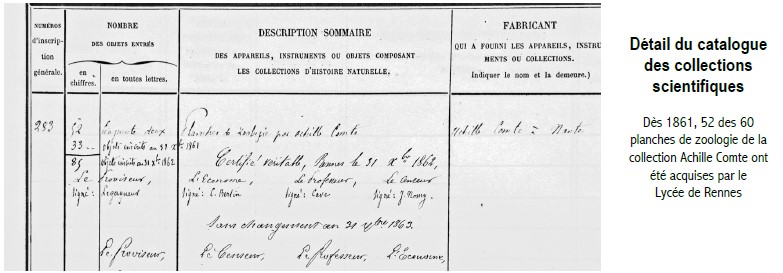 NUMÉROS
d'inscrip-
tion
générale.
NOMBRE
DES OBJETS ENTRÉS
en
chiffres.
en toutes lettres.
DESCRIPTION SOMMAIRE
DES APPAREILS, INSTRUMENTS OU OBJETS COMPOSANT
LES COLLECTIONS D'HISTOIRE NATURELLE.
FABRICANT
QUI A FOURNI LES APPAREILS, INSTRU
MENTS OU COLLECTIONS.
Indiquer le nom et la demeure.)
283 52 Cinquante deux Planches de Zoologie par Achille Comte Achille Comte = Nantes
33 objets inscrits au 31 Xbre 1861
85 objets inscrits au 31 Xbre 1862 Certifié véritable, Rennes le 31 Xbre 1862,
Le Proviseur, L'Econome, Le Professeur, Le Censeur
signé: signé: C. Bertin signé: signé: J.
Sans changement au 31 Xbre 1863.
Le Proviseur, Le Censeur, Le Professeur, L'Econome,
Détail du catalogue
des collections
scientifiques
Dès 1861, 52 des 60
planches de zoologie de la
collection Achille Comte ont
été acquises par le
Lycée de Rennes